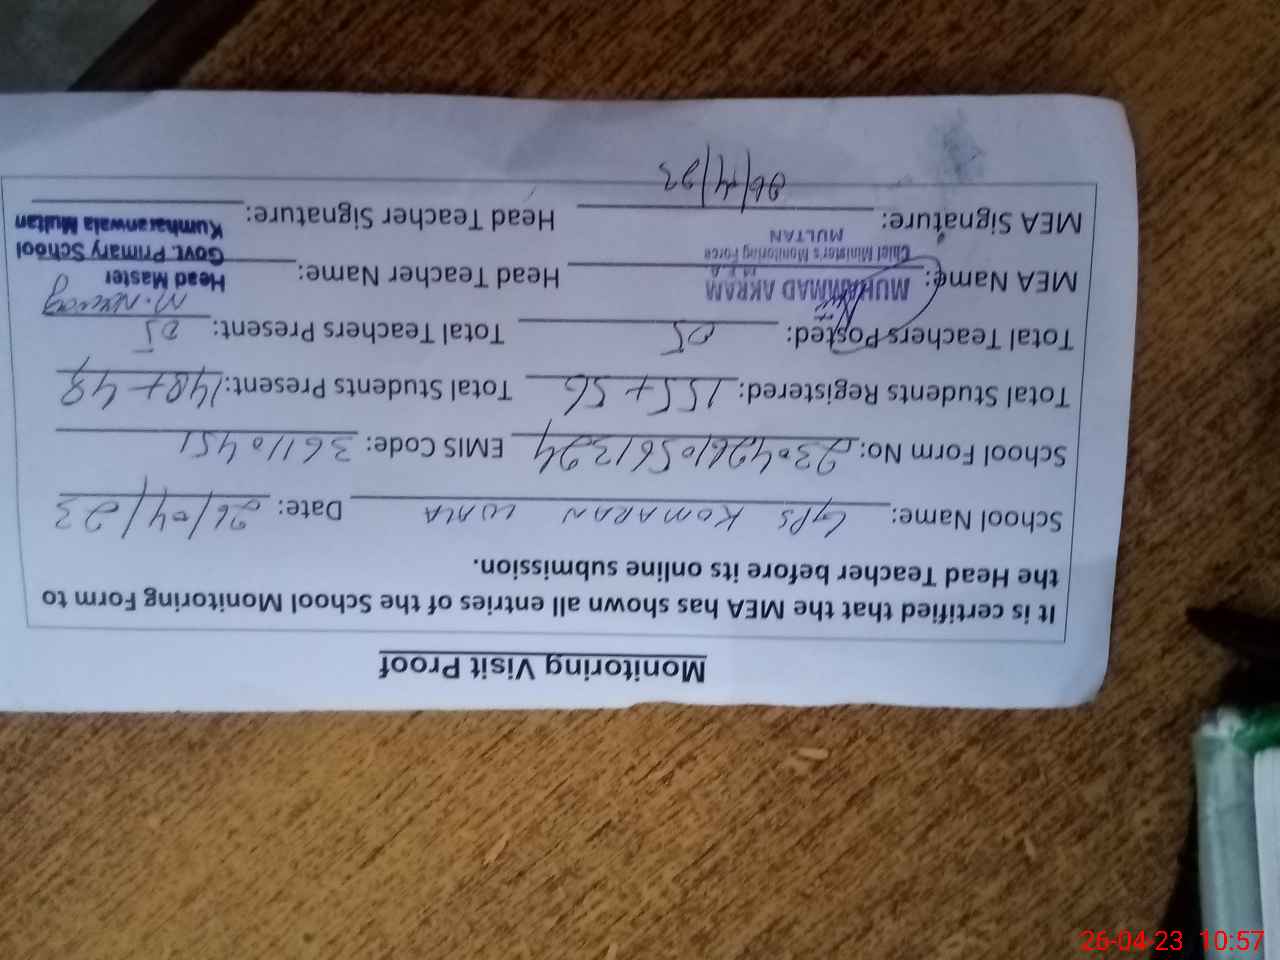 Monitoring Visit Proof
It is certified that the MEA has shown all entries of the School Monitoring Form to
the Head Teacher before its online submission.
School Name: GPS KOMARAN WALA Date: 26/04/23
School Form No: 23042610561324 EMIS Code: 36110451
Total Students Registered: 155+56 Total Students Present: 148+48
Total Teachers Posted: 05 Total Teachers Present: 05
MEA Name: MUHAMMAD AKRAM Head Teacher Name: Head Master
M.E.A
Chief Minister's Monitoring Force Govt. Primary School
MULTAN Kumharanwala Multan
MEA Signature: Head Teacher Signature:
26/4/23
26-04-23 10:57